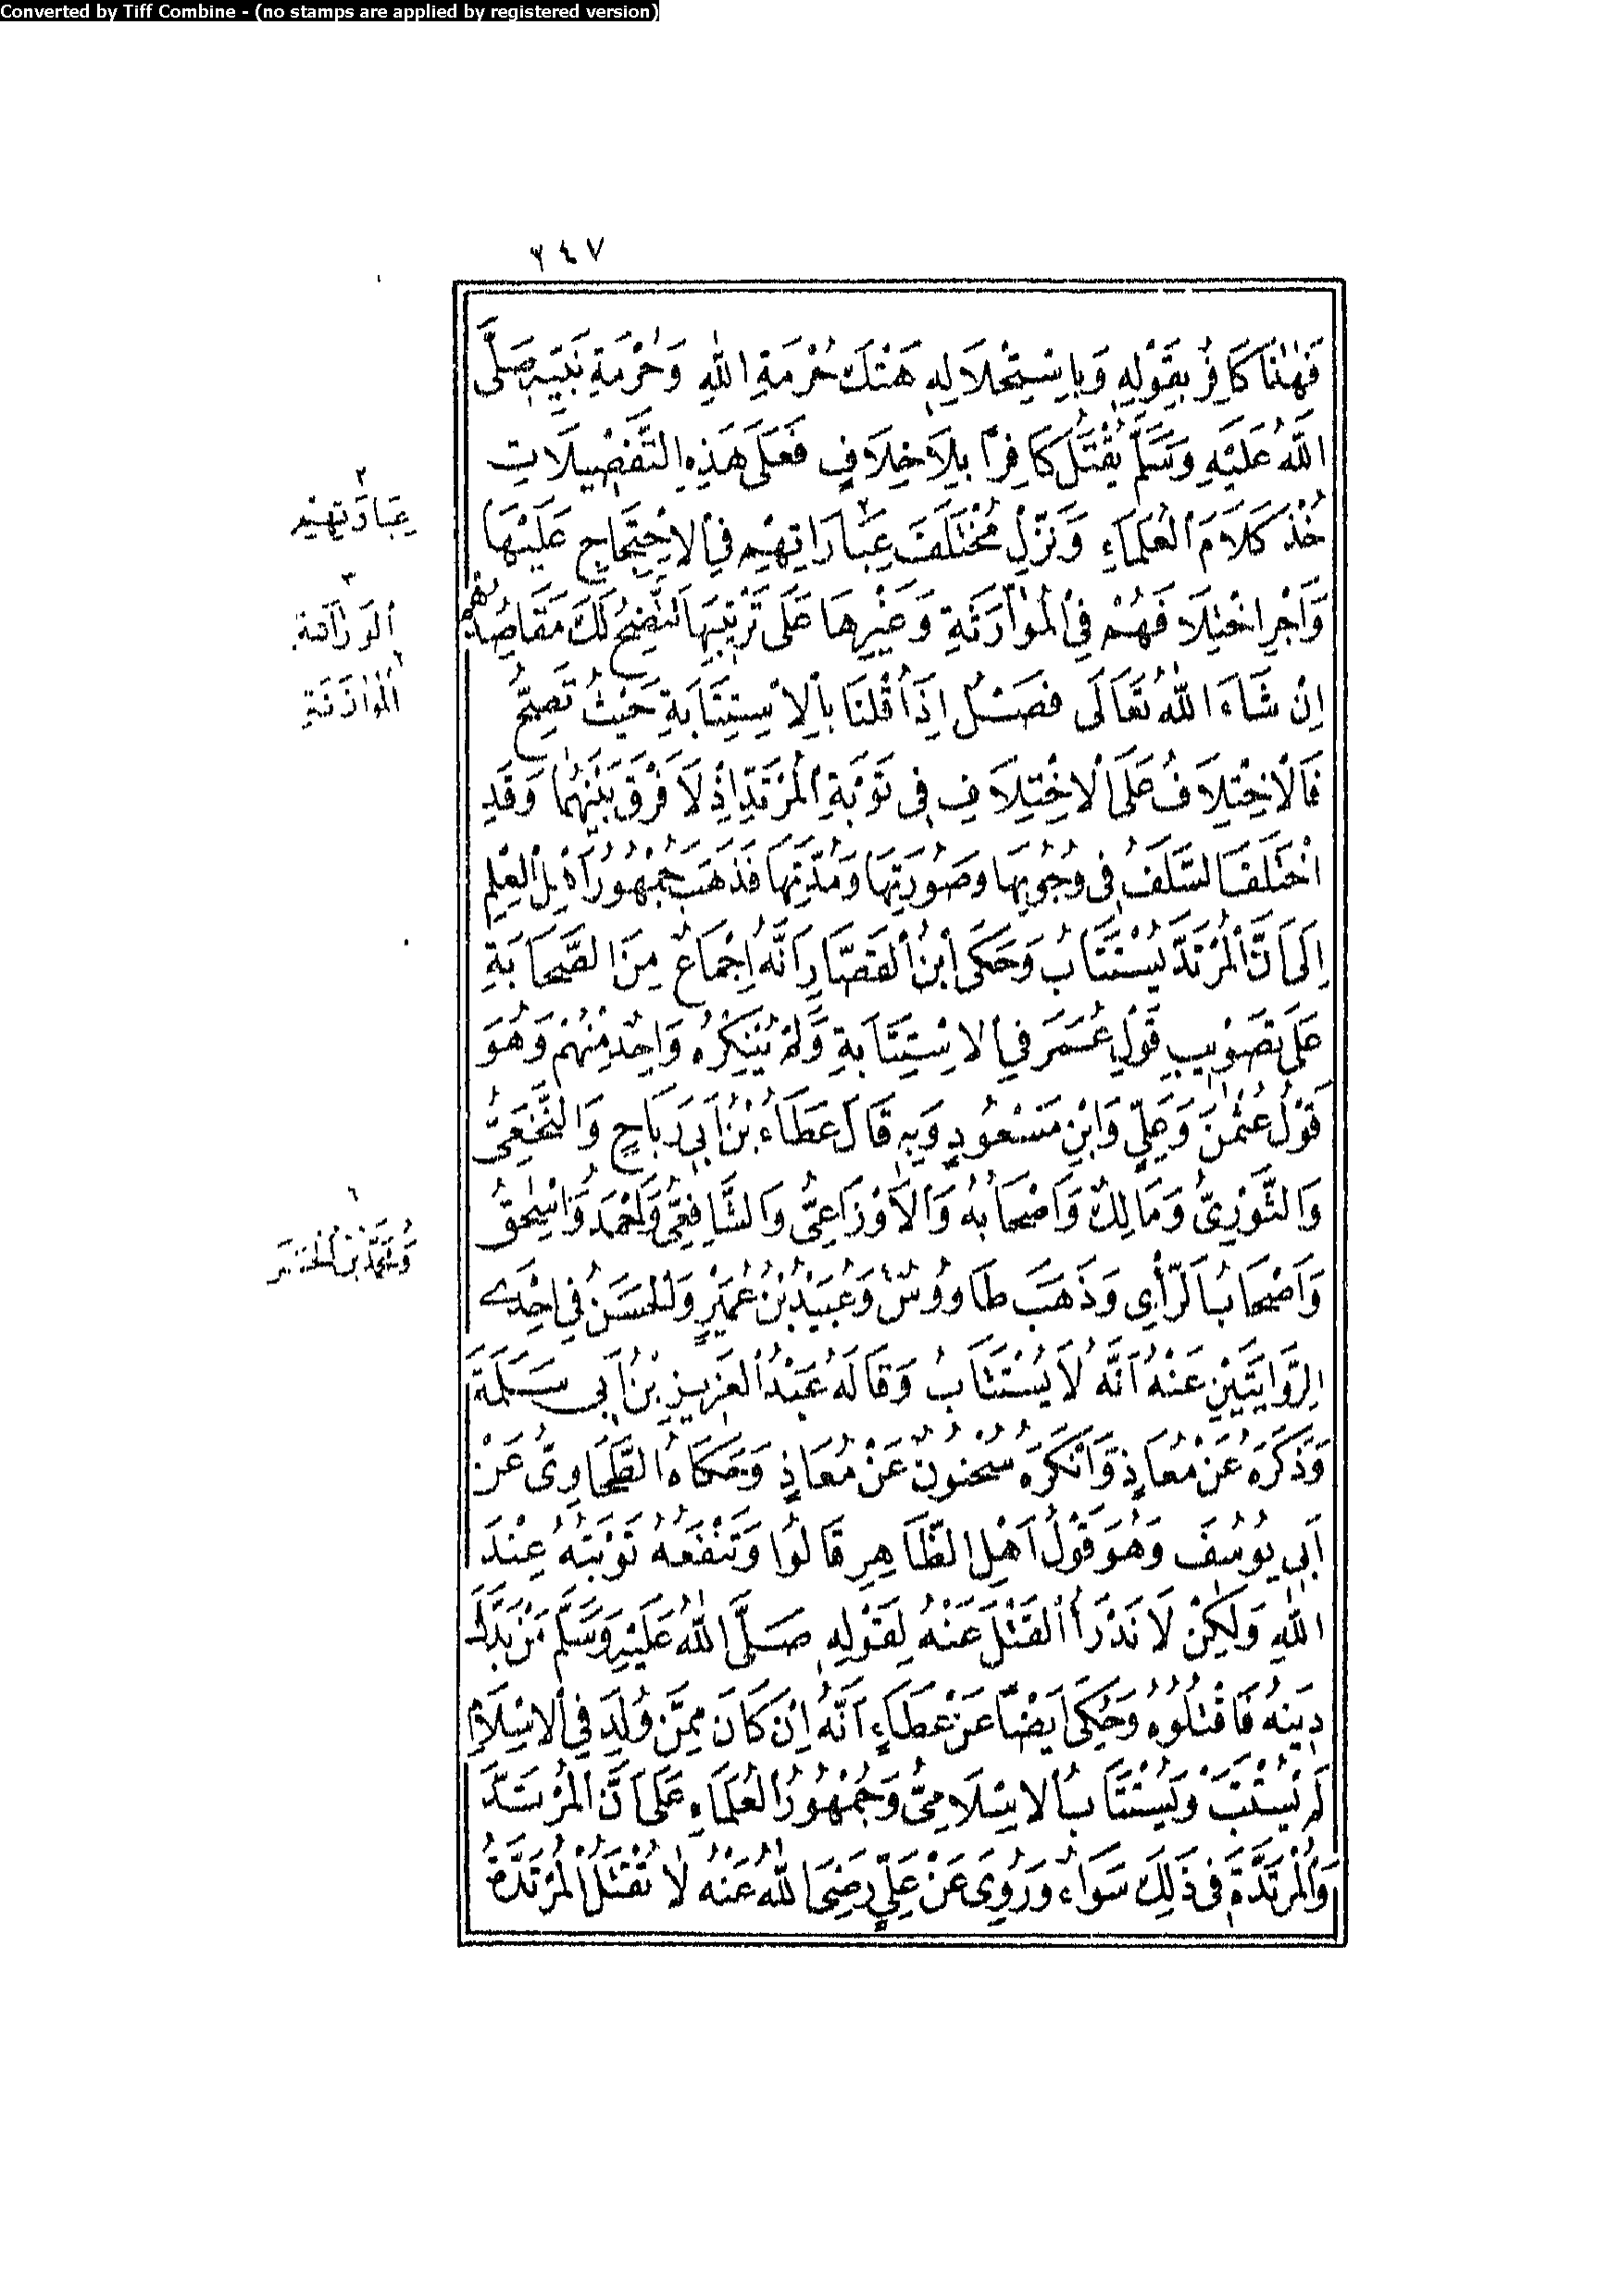 Converted by Tiff Combine - (no stamps are applied by registered version)
٢٤٧
فَهٰذَا كَافِرٌ بِقَوْلِهِ وَبِاسْتِحْلَالِهِ هَتْكَ حُرْمَةِ اللّٰهِ وَحُرْمَةِ نَبِيِّهِ صَلَّى
اللّٰهُ عَلَيْهِ وَسَلَّمَ يُقْتَلُ كَافِرًا بِلَا خِلَافٍ فَعَلَى هَذِهِ التَّفْصِيلَاتِ
خُذْ كَلَامَ الْعُلَمَاءِ وَنَزِّلْ مُخْتَلَفَ عِبَارَاتِهِمْ فِي الْاِحْتِجَاجِ عَلَيْهَا
وَاَجْرِ اخْتِلَافَهُمْ فِي الْمُوَارَثَةِ وَغَيْرِهَا عَلَى تَرْتِيبِهَا لِتَتَّضِحَ لَكَ مَقَاصِدُهُمْ
اِنْ شَاءَ اللّٰهُ تَعَالَى فَصْلٌ اِذَا قُلْنَا بِالْاِسْتِتَابَةِ حَيْثُ تَصِحُّ
فَالْاِخْتِلَافُ عَلَى الْاِخْتِلَافِ فِي تَوْبَةِ الْمُرْتَدِّ اِذْ لَا فَرْقَ بَيْنَهُمَا وَقَدِ
اخْتَلَفَ السَّلَفُ فِي وُجُوبِهَا وَصُورَتِهَا وَمُدَّتِهَا فَذَهَبَ جُمْهُورُ اَهْلِ الْعِلْمِ
اِلَى اَنَّ الْمُرْتَدَّ يُسْتَتَابُ وَحَكَى ابْنُ الْقَصَّارِ اَنَّهُ اِجْمَاعٌ مِنَ الصَّحَابَةِ
عَلَى تَصْوِيبِ قَوْلِ عُمَرَ فِي الْاِسْتِتَابَةِ وَلَمْ يُنْكِرْهُ وَاحِدٌ مِنْهُمْ وَهُوَ
قَوْلُ عُثْمٰنَ وَعَلِيٍّ وَابْنِ مَسْعُودٍ وَبِهِ قَالَ عَطَاءُ بْنُ اَبِي رَبَاحٍ وَالنَّخَعِيُّ
وَالثَّوْرِيُّ وَمَالِكٌ وَاَصْحَابُهُ وَالْاَوْزَاعِيُّ وَالشَّافِعِيُّ وَاَحْمَدُ وَاِسْحٰقُ
وَاَصْحَابُ الرَّأْيِ وَذَهَبَ طَاوُوسٌ وَعُبَيْدُ بْنُ عُمَيْرٍ وَالْحَسَنُ فِي اِحْدَى
الرِّوَايَتَيْنِ عَنْهُ اَنَّهُ لَا يُسْتَتَابُ وَقَالَهُ عَبْدُ الْعَزِيزِ بْنُ اَبِي سَلَمَةَ
وَذَكَرَهُ عَنْ مُعَاذٍ وَاَنْكَرَهُ سُحْنُونٌ عَنْ مُعَاذٍ وَحَكَاهُ الطَّحَاوِيُّ عَنْ
اَبِي يُوسُفَ وَهُوَ قَوْلُ اَهْلِ الظَّاهِرِ قَالُوا وَتَنْفَعُهُ تَوْبَتُهُ عِنْدَ
اللّٰهِ وَلَكِنْ لَا نَدْرَأُ الْقَتْلَ عَنْهُ لِقَوْلِهِ صَلَّى اللّٰهُ عَلَيْهِ وَسَلَّمَ مَنْ بَدَّلَ
دِينَهُ فَاقْتُلُوهُ وَحُكِيَ اَيْضًا عَنْ عَطَاءٍ اَنَّهُ اِنْ كَانَ مِمَّنْ وُلِدَ فِي الْاِسْلَامِ
لَمْ يُسْتَتَبْ وَيُسْتَتَابُ الْاِسْلَامِيُّ وَجُمْهُورُ الْعُلَمَاءِ عَلَى اَنَّ الْمُرْتَدَّ
وَالْمُرْتَدَّةَ فِي ذَلِكَ سَوَاءٌ وَرُوِيَ عَنْ عَلِيٍّ رَضِيَ اللّٰهُ عَنْهُ لَا تُقْتَلُ الْمُرْتَدَّةُ
٢
عِبَارَتِهِمْ
٣
٦
الْمُوَازَنَةِ
٦
وَمُحَمَّدُ بْنُ الْحَسَنِ